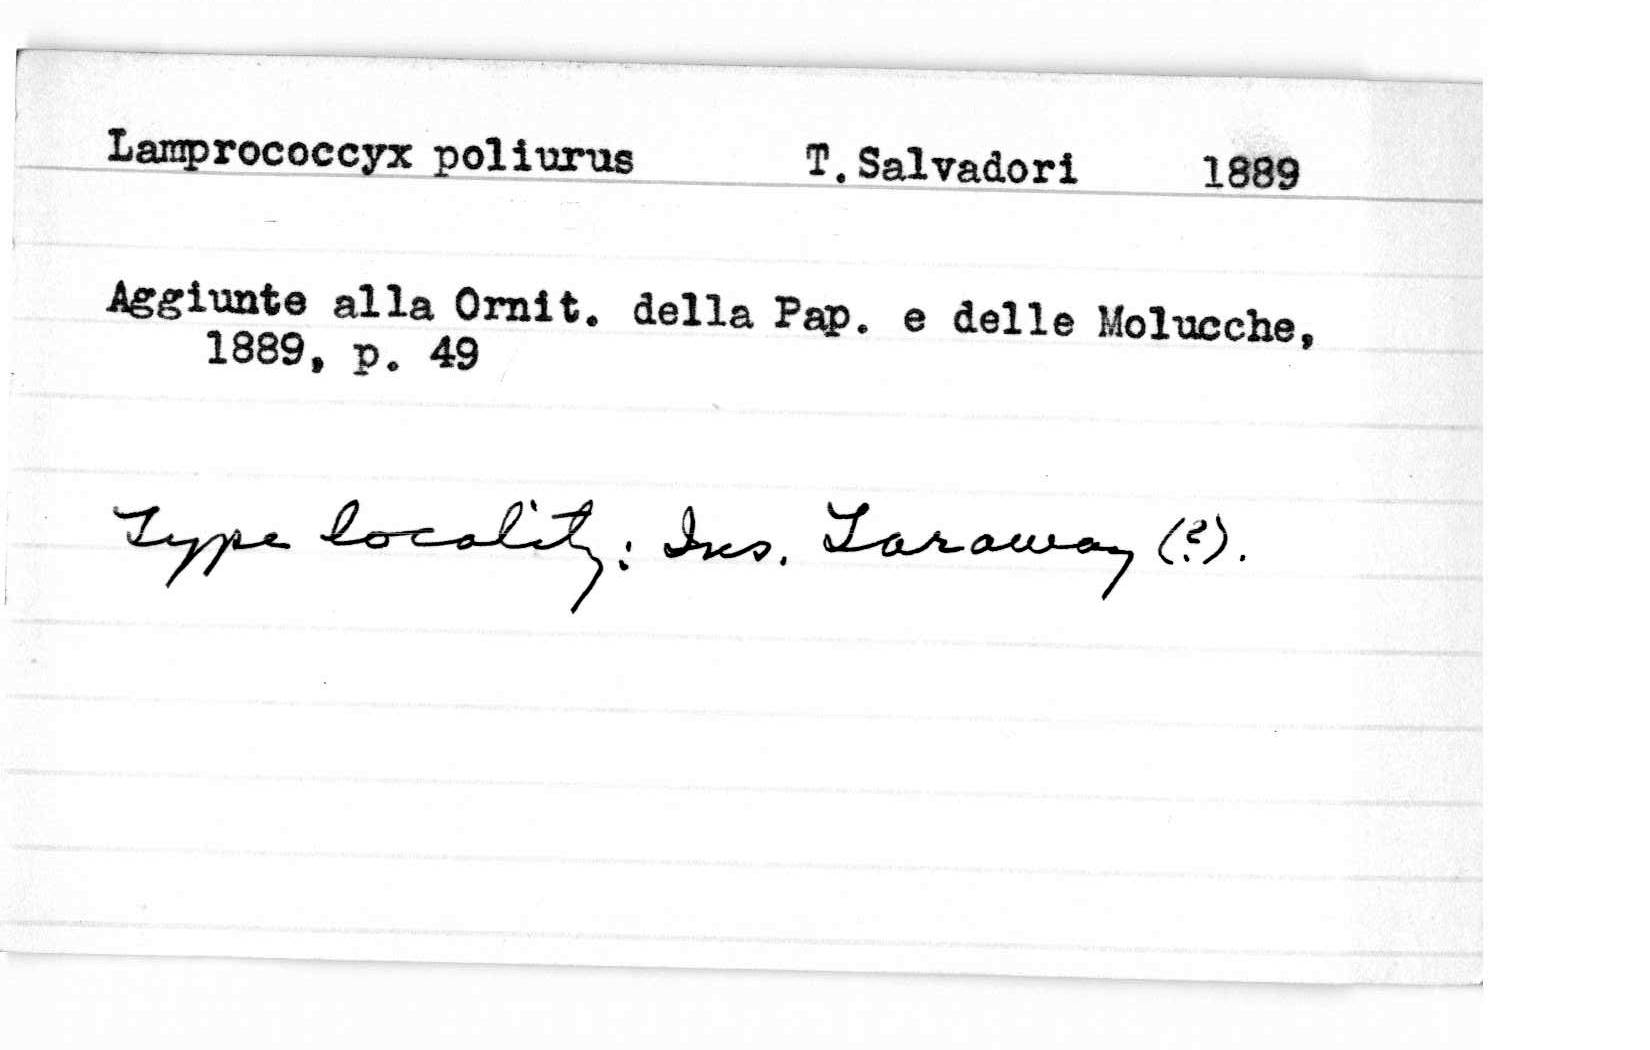 Lamprococcyx poliurus T. Salvadori 1889
Aggiunte alla Ornit. della Pap. e delle Molucche,
1889, p. 49
Type locality: Ins. Taraway (?).